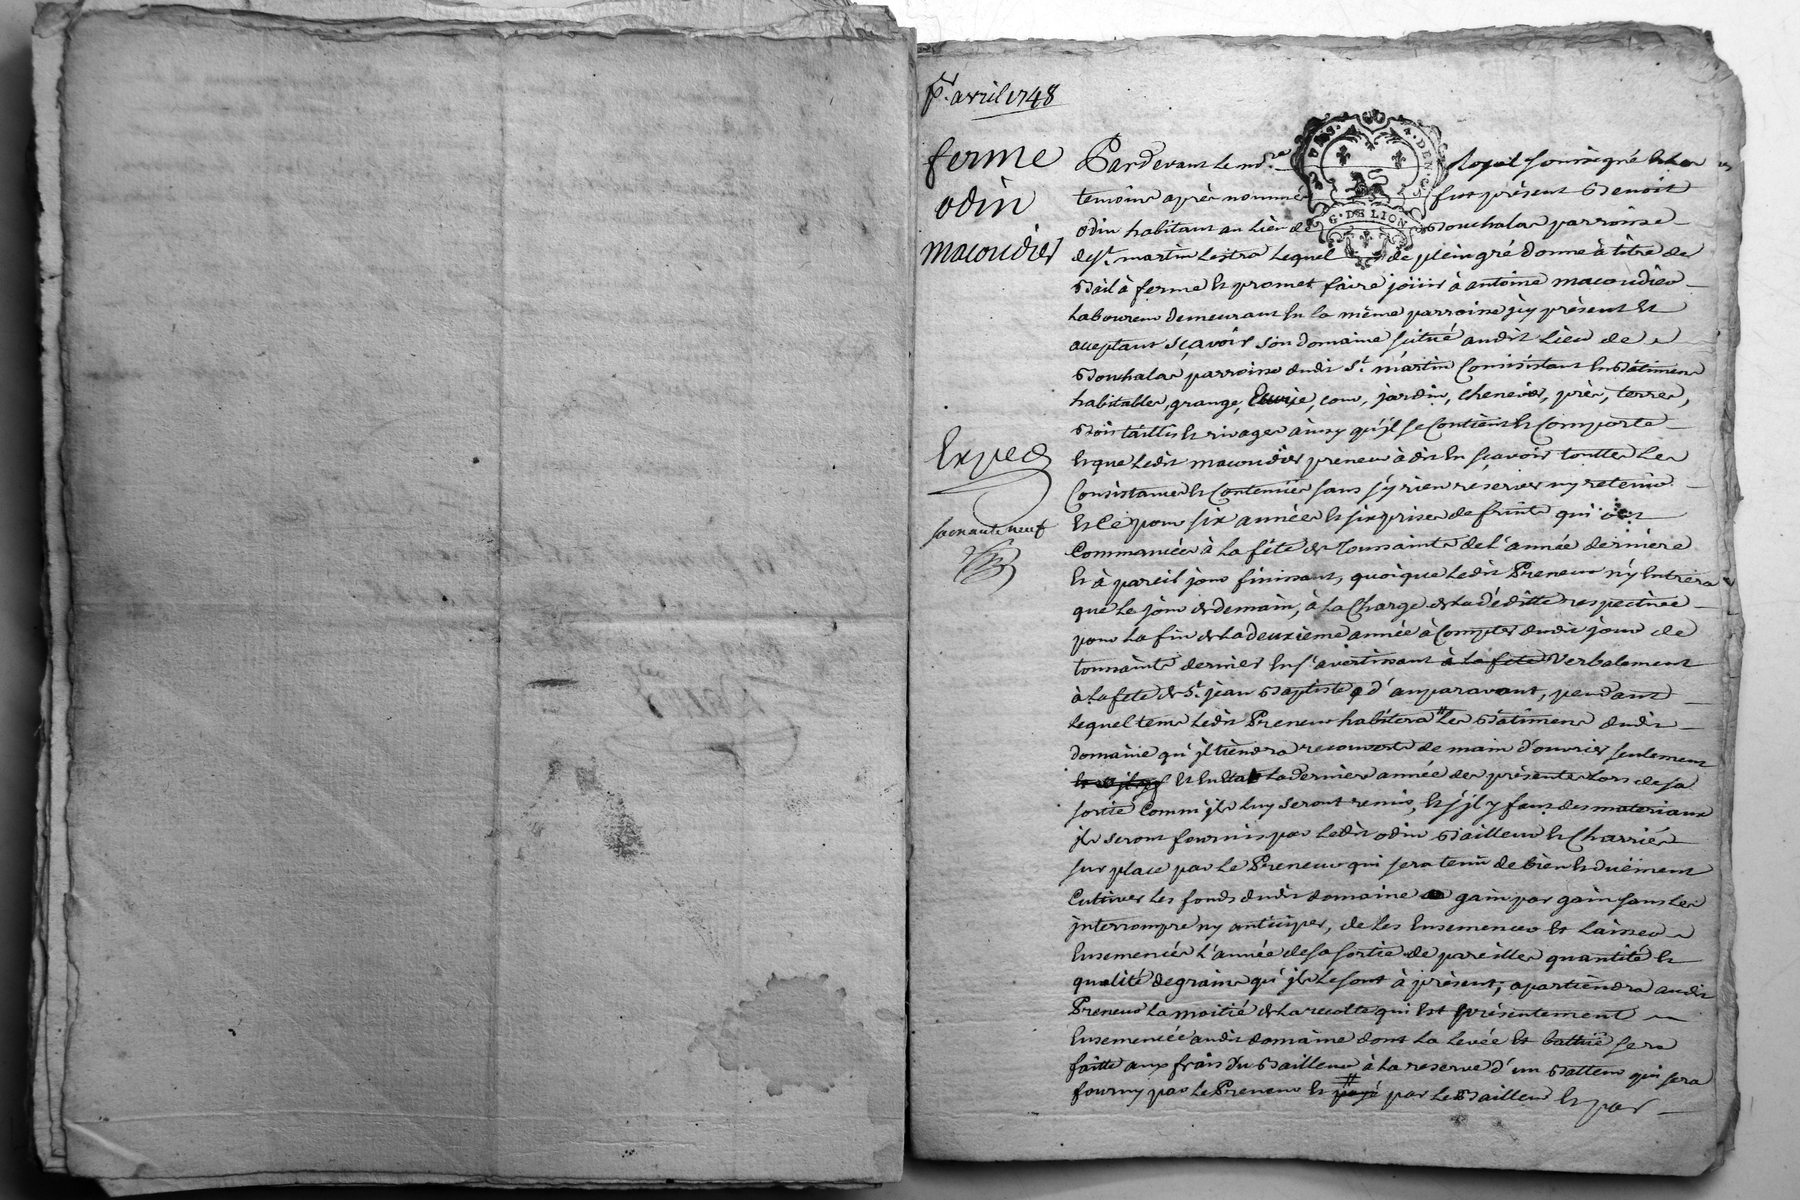 pr. avril 1748
ferme
odin
macoudier
Exped
soixante neuf
Pardevant le no.re Royal soussigné et les
temoins après nommés fut présent Benoit
odin habitant au lieu de Bouchalas parroisse
de st. martin Lestra Lequel de plein gré donne à titre de
Bail à ferme et promet faire joüir à antoine macoudier
Laboureur demeurant en la même parroisse jcy présent et
acceptant sçavoir son domaine scitué audit Lieu de
Bouchalas parroisse dudit St. martin Consistant en Batimens
habitables, grange, Ecurie, cour, jardin, chenevier, près, terres,
Bois taillis et rivages ainsy qu'jl se Contient et Comporte
et que Ledit macoudier preneur à dit en sçavoir touttes Les
Consistances et Contenües sans s'y rien reserver ny retenir
et Ce pour six années et six prises de fruits qui ont
Commancées à la fête de Toussaints de l'année derniere
et à pareil jour finissant, quoique Ledit Preneur n'y Entrera
que Le jour de demain, à La Charge de La dédite respective
pour La fin de La deuxieme année à Compter dudit jour de
toussaints dernier en s'avertissant à la fete verbalement
à La fete de St. jean Baptiste d'auparavant, pendant
Lequel tems Ledit Preneur habitera Les Batimens dudit
domaine qu'jl tiendra recouverts de main d'ouvrier seulement
et en Etat La derniere année des présentes Lors de sa
sortie Comm'jls Luy seront remis, et s'jl y faut des materiaux
jls seront fournis par Ledit odin Bailleur et Charriés
sur place par Le Preneur qui sera tenu de bien et duëment
Cultiver Les fonds dudit domaine gain par gain sans Les
jnterrompre ny anticiper, de Les Ensemencer et Laisser
Ensemencés L'année de sa sortie de pareilles quantité et
qualité de grains qu'jls Le sont à présent; apartiendra audit
Preneur La moitié de La recolte qui est présentement
Ensemencée audit domaine dont La Levée et battüe sera
faitte aux frais du Bailleur à La reserve d'un Batteur qui sera
fourny par Le Preneur et payé par Le Bailleur et par
G. DE LION